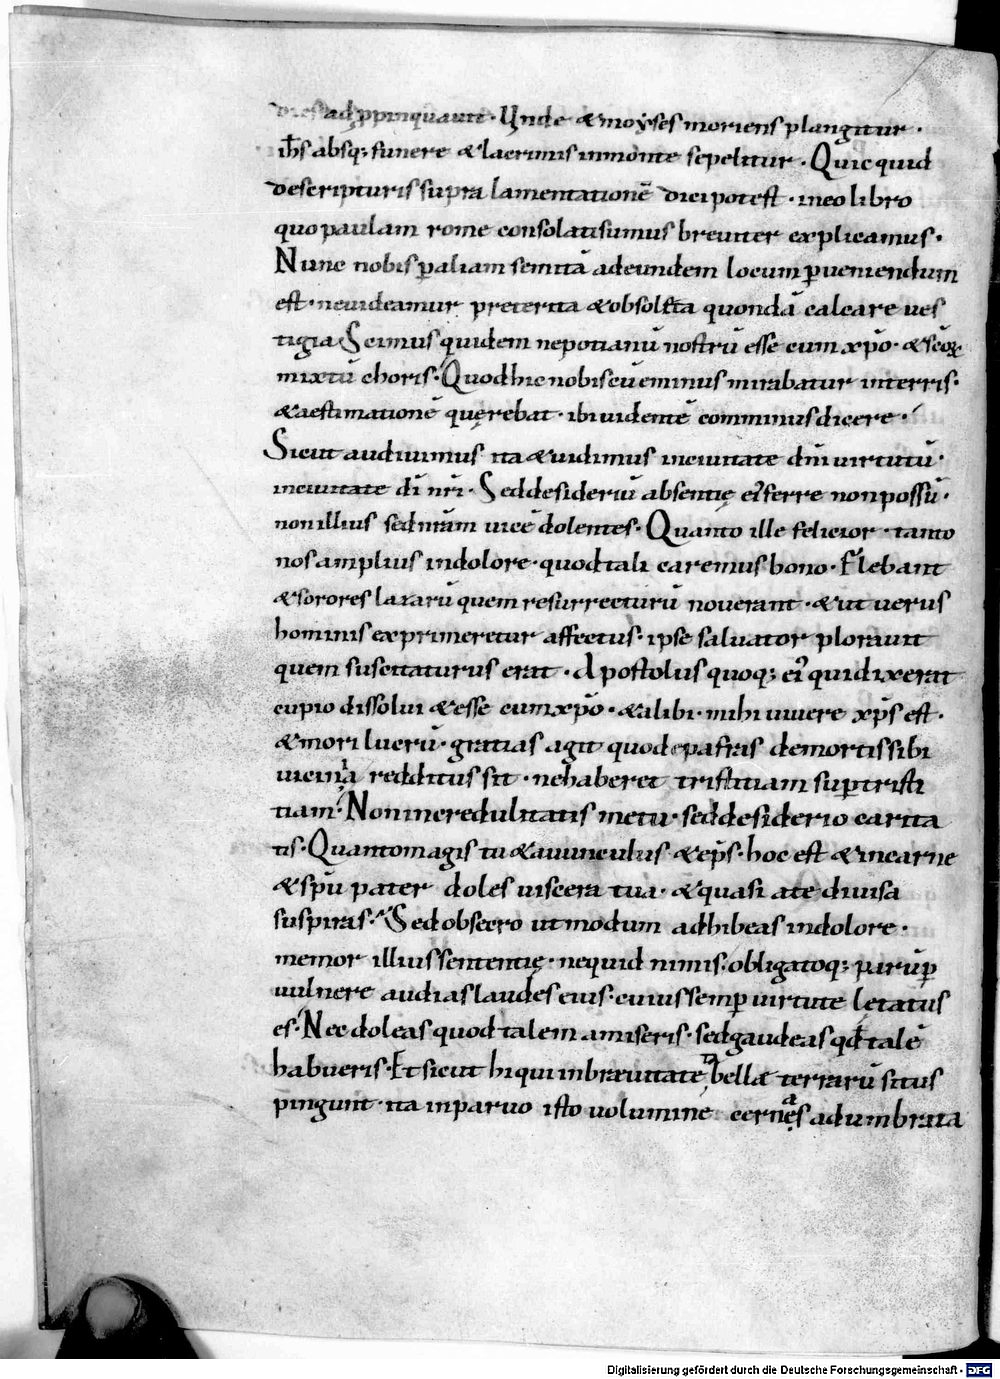 dies adp̱pinquauit · Unde & moyses moriens plangitur ·
ih̄s absq; funere & lacrimis in monte sepelitur · Quicquid
de scripturis supra lamentationē dici potest · in eo libro
quo paulam rome consolati sumus breuiter explicamus ·
Nunc nobis p̱ aliam semitā ad eundem locum p̱ueniendum
est · ne uideamur preterita & obsoleta quondā calcare ues
tigia Scimus quidem nepotianū nostrū esse cum xp̄o · & sc̄orꝝ
mixtū choris · Quod hic nobiscū eminus mirabatur in terris ·
& aestimationē quęrebat · ibi uidentē comminus dicere ·
Sicut audiuimus ita & uidimus in ciuitate dn̄i uirtutū ·
in ciuitate dī nr̄i · Sed desideriū absentię eı' ferre non possū ·
non illius sed nr̄am uicē dolentes · Quanto ille felicior · tanto
nos amplius in dolore · quod tali caremus bono · Flebant
& sorores lazarū quem resurrecturū nouerant · & ut uerus
hominis exprimeretur affectus · ipse saluator plorauit
quem suscitaturus erat · Apostolus quoq; eı' qui dixerat
cupio dissolui & esse cum xp̄o · & alibi · mihi uiuere xp̄s est ·
& mori lucrū · gratias agit quod epafras de mortis sibi
uicinia redditus sit · ne haberet tristitiam sup̱ tristi
tiam · Non incredulitatis metu · sed desiderio carita
tis · Quanto magis tu & auunculus & ep̄s · hoc est & in carne
& sp̄u pater doles uiscera tua · & quasi a te diuisa
suspiras · Sed obsecro ut modum adhibeas in dolore ·
memor illius sententię · ne quid nimis · obligatoq; parūp̱
uulnere audias laudes eius · cuius semp̱ uirtute lętatus
es · Nec doleas quod talem amiseris · sed gaudeas qđ talē
habueris · Et sicut hi qui in breuitate tabellæ terrarū situs
pingunt · ita in paruo isto uolumine cernas adumbrata
Digitalisierung gefördert durch die Deutsche Forschungsgemeinschaft - DFG